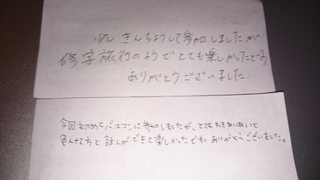 少しきんちょうして参加しましたが
修学旅行のようでとても楽しかったです
ありがとうございました。
今回初めてバスコンに参加しましたが、とても
色んな方と話しができて楽しかったです。ありがとうございました。